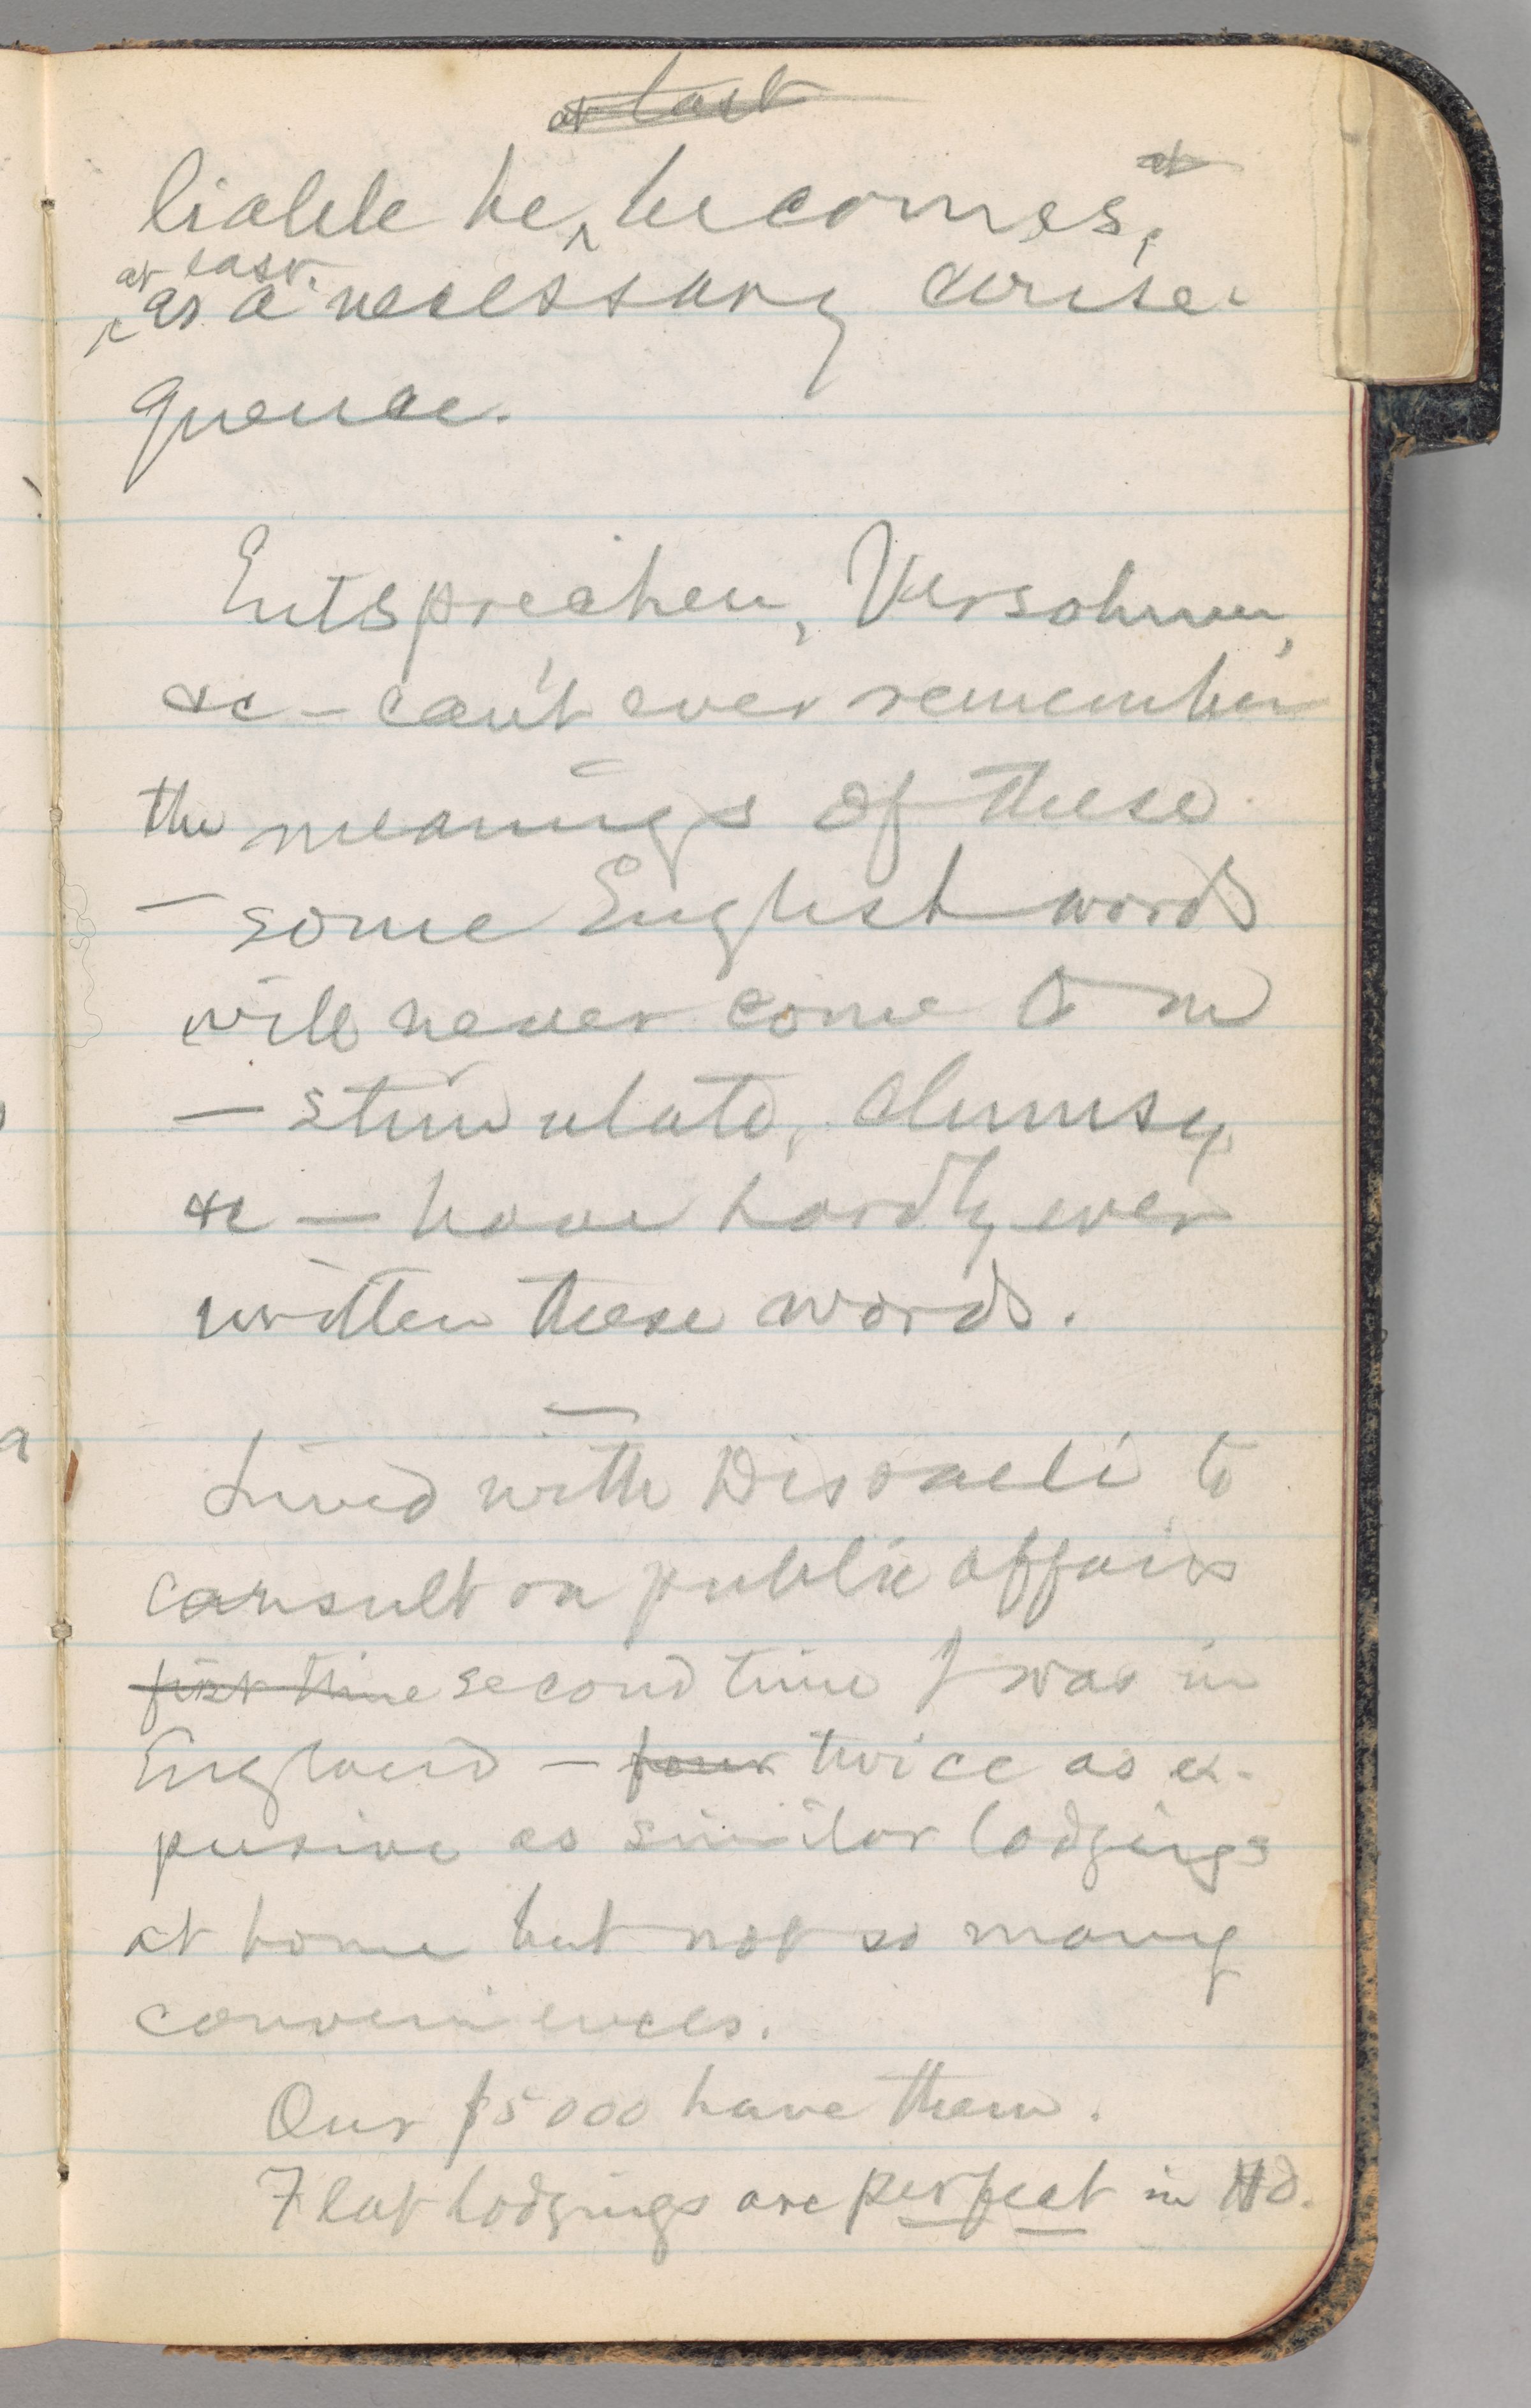 at last
liable he becomes, at
at last.
as a necessary conse-
quence.
Entsprechen, Versohnen,
&c – can't ever remember
the meanings of these
– some English words
will never come to me
– stimulate, clumsy,
&c — have hardly ever
written these words.
Lived with Disraeli to
consult on public affairs
first time second time I was in
England – four twice as ex-
pensive as similar lodgings
at home but not so many
conveniences.
Our $5000 have them.
Flat lodgings are perfect in Hd.